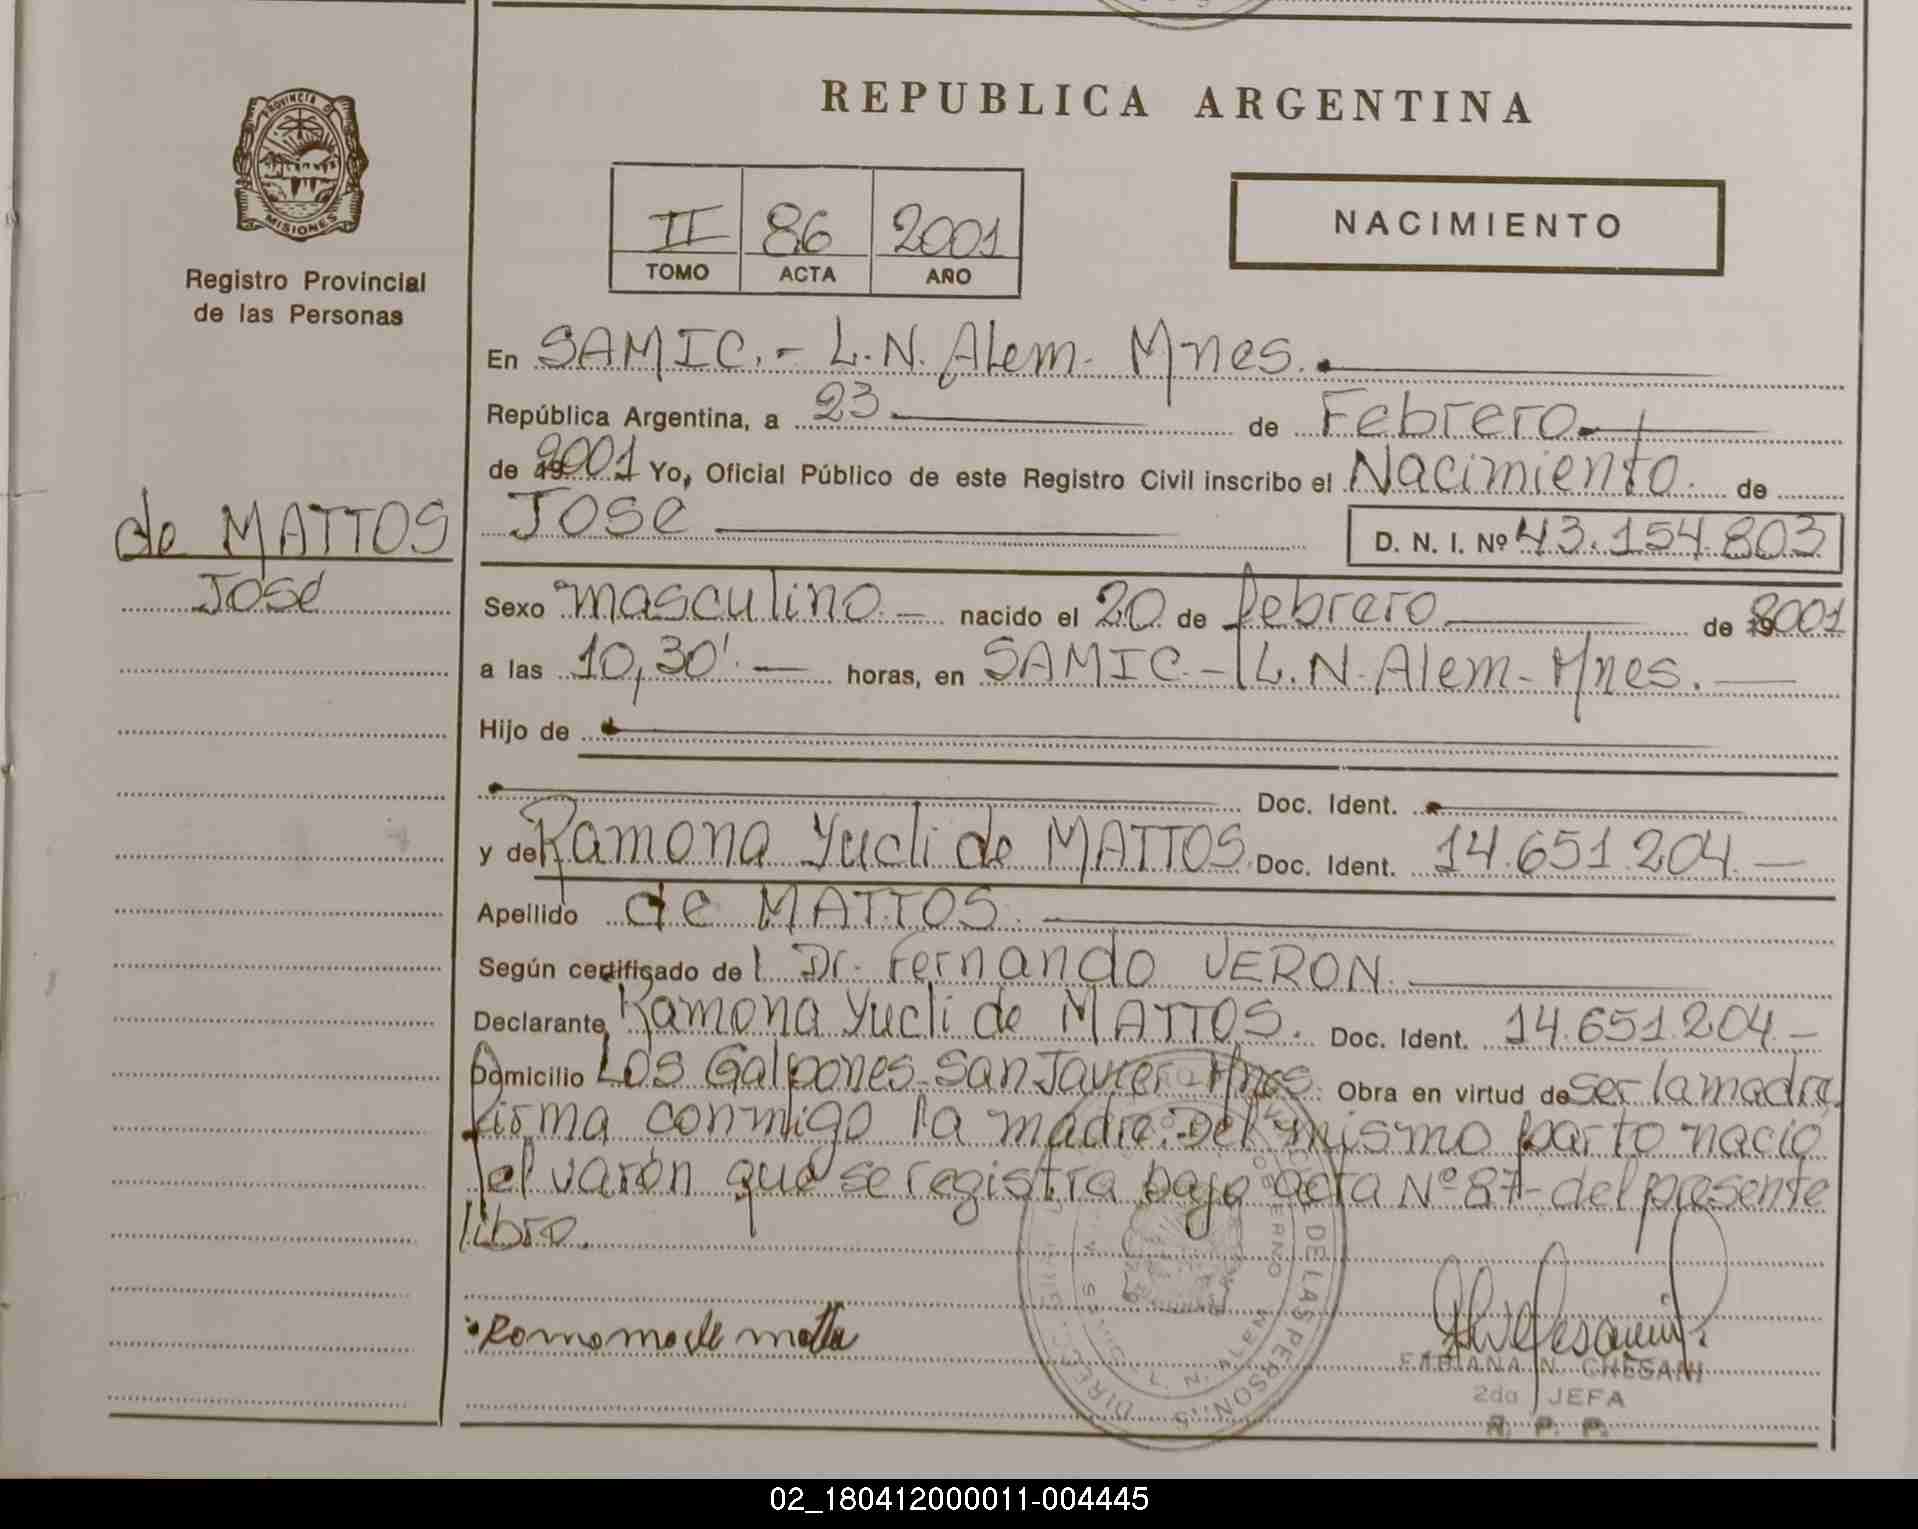 REPUBLICA ARGENTINA
PROVINCIA DE
MISIONES
Registro Provincial
de las Personas
II 86 2001
TOMO ACTA AÑO
NACIMIENTO
En SAMIC.- L.N. Alem- Mnes.
República Argentina, a 23 de Febrero
de 2001 Yo, Oficial Público de este Registro Civil inscribo el Nacimiento. de
de MATTOS
José
JOSE D. N. I. Nº 43.154.803
Sexo masculino.- nacido el 20 de febrero de 2001
a las 10,30'.- horas, en SAMIC.- L.N. Alem- Mnes.-
Hijo de
Doc. Ident.
y de Ramona Yucli de MATTOS. Doc. Ident. 14.651.204.-
Apellido de MATTOS.
Según certificado del Dr. Fernando VERON.
Declarante Ramona Yucli de MATTOS. Doc. Ident. 14.651.204.-
Domicilio Los Galpones-San Javier Mnes. Obra en virtud de ser la madre.
firma conmigo la madre. Del mismo parto nació
el varón que se registra bajo acta Nº 87- del presente
libro.
FABIANA N. CHESANI
2da JEFA
R. P. P.
DE LAS PERSONAS
L. N. ALEM
02_180412000011-004445